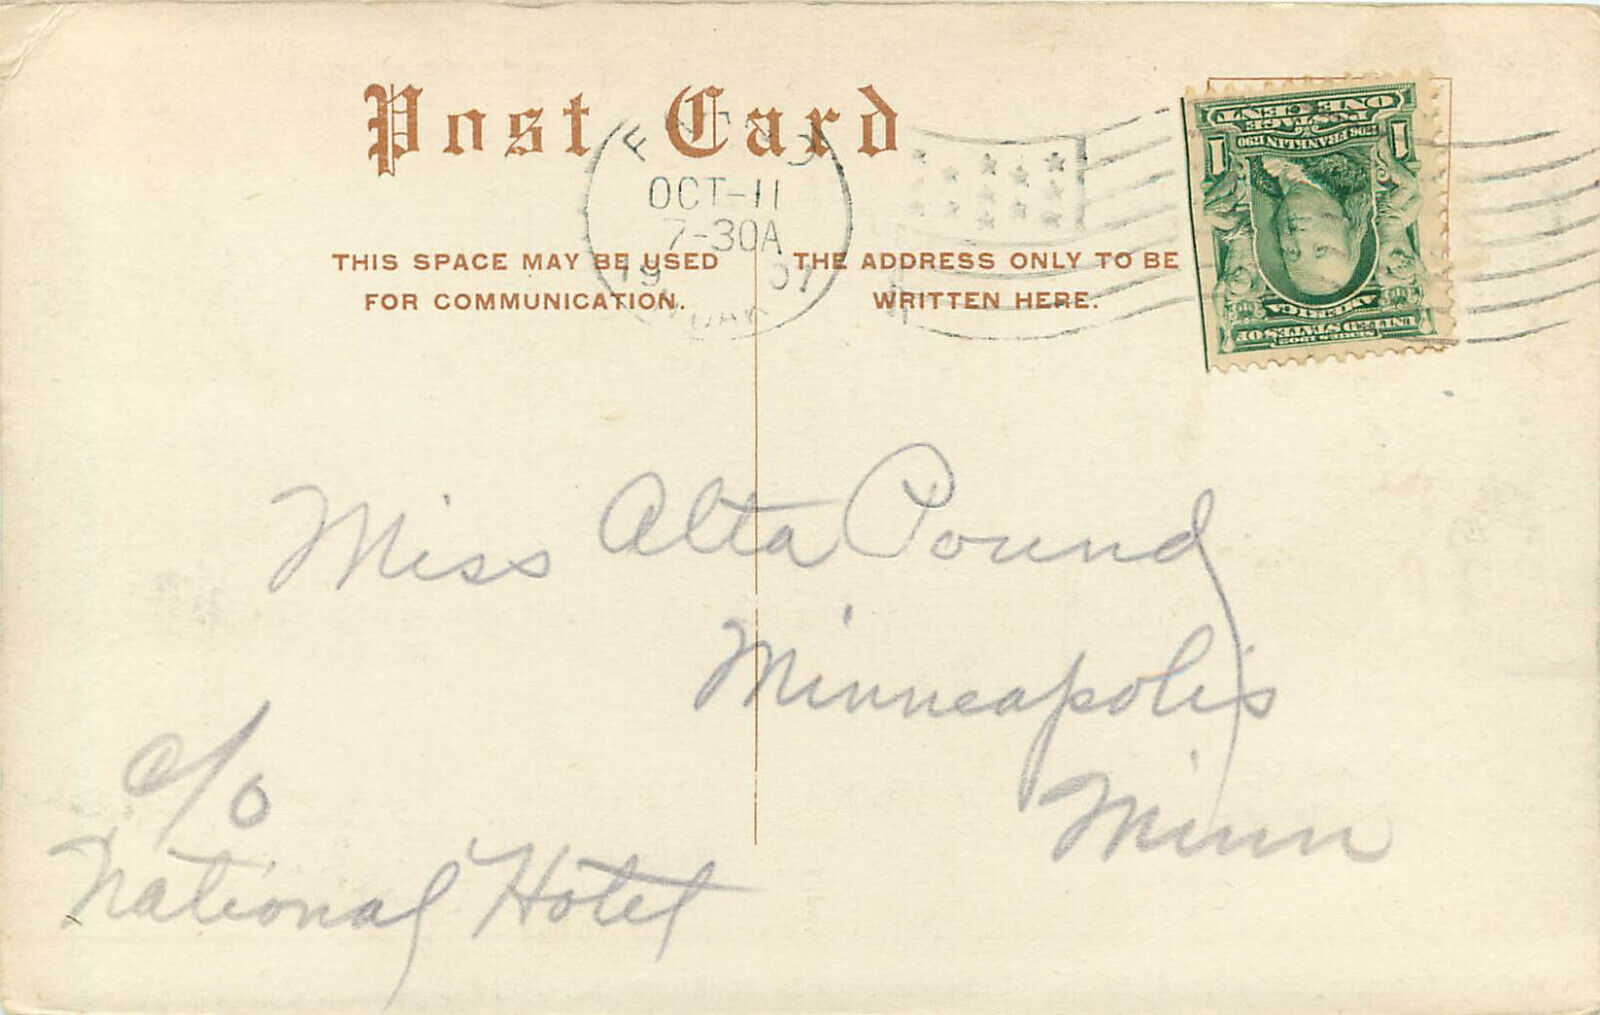 Post Card
OCT-11
7-30A
19 07
N. DAK
THIS SPACE MAY BE USED
FOR COMMUNICATION.
THE ADDRESS ONLY TO BE
WRITTEN HERE.
ONE CENT
POSTAGE
1706 FRANKLIN 1790
1 1
UNITED STATES OF
AMERICA
SERIES 1902
Miss Alta Pound
Minneapolis
Minn
c/o
National Hotel